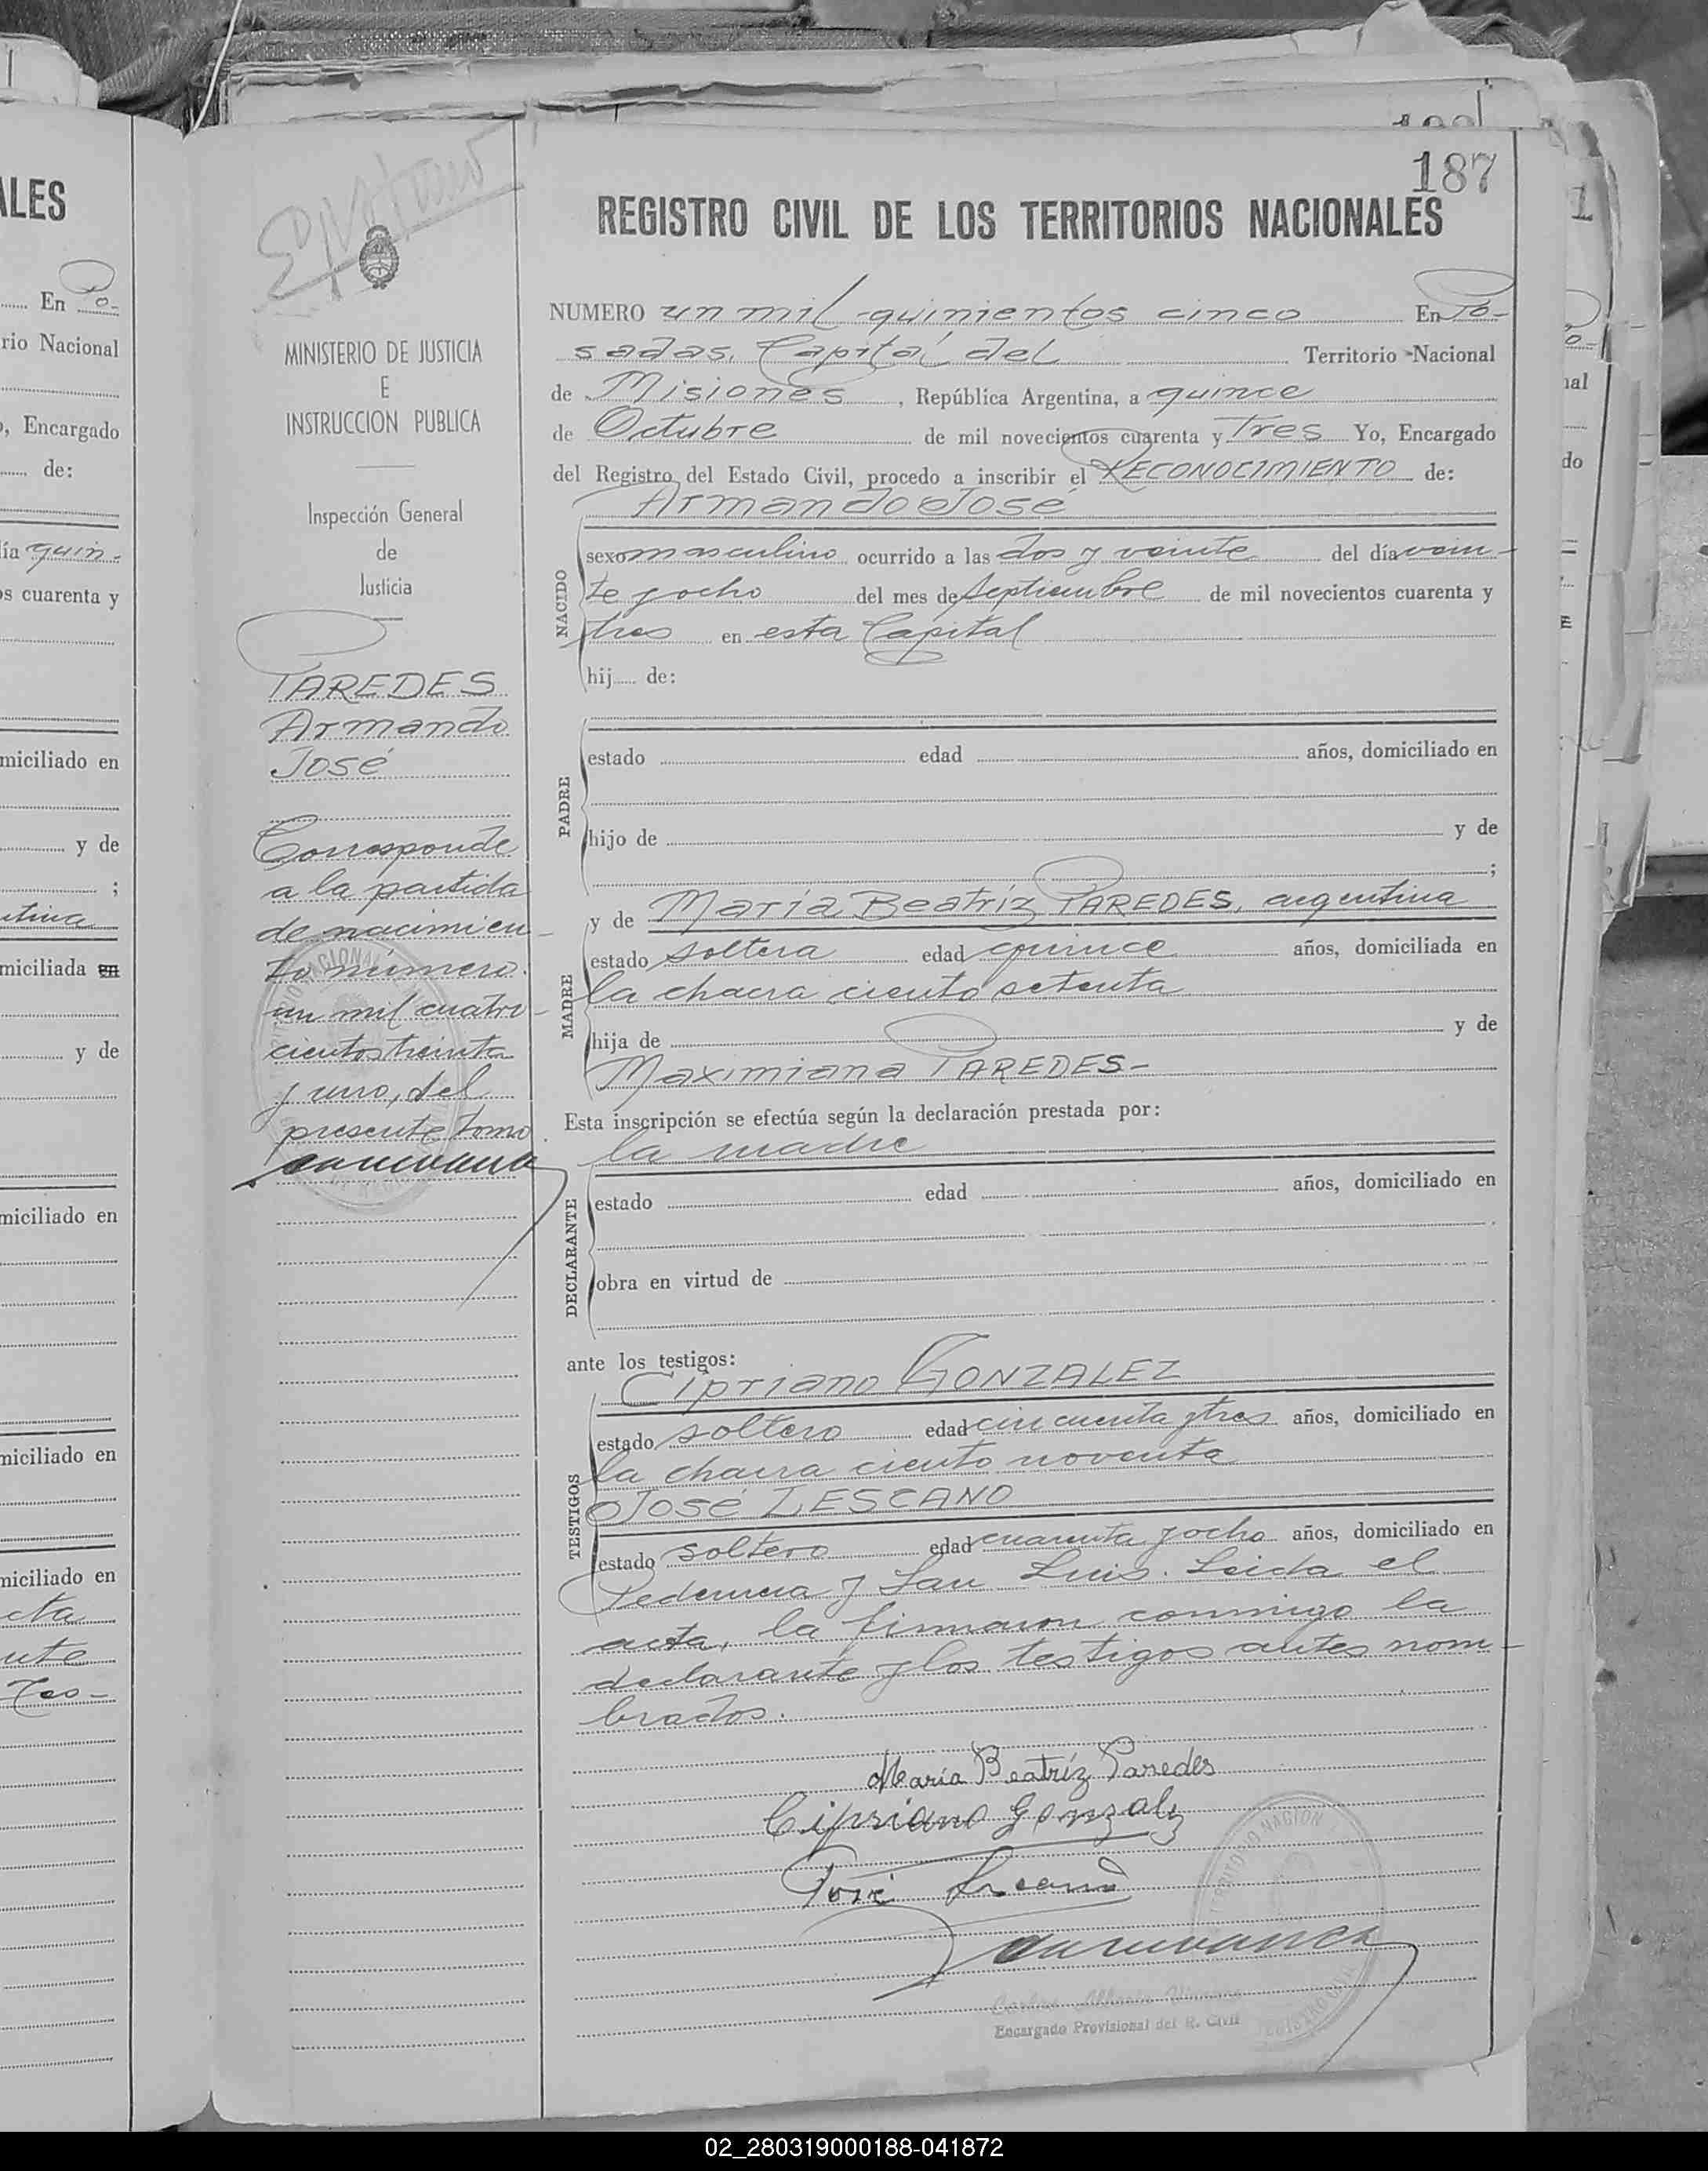 187
REGISTRO CIVIL DE LOS TERRITORIOS NACIONALES
NUMERO un mil quinientos cinco En Po-
sadas, Capital del Territorio Nacional
de Misiones, República Argentina, a quince
de Octubre de mil novecientos cuarenta y Tres Yo, Encargado
del Registro del Estado Civil, procedo a inscribir el RECONOCIMIENTO de:
Armando José
NACIDO
sexo masculino ocurrido a las dos y veinte del día vein-
te y ocho del mes de Septiembre de mil novecientos cuarenta y
tres en esta Capital
hij de:
PADRE
estado edad años, domiciliado en
hijo de y de
;
MADRE
y de María Beatríz PAREDES, argentina
estado soltera edad quince años, domiciliada en
la chacra ciento setenta
hija de y de
Maximiana PAREDES-
Esta inscripción se efectúa según la declaración prestada por:
la madre
DECLARANTE
estado edad años, domiciliado en
obra en virtud de
ante los testigos:
TESTIGOS
Cipriano GONZALEZ
estado soltero edad cincuenta y tres años, domiciliado en
la chacra ciento noventa
José LESCANO
estado soltero edad cuarenta y ocho años, domiciliado en
Pedernera y San Luis. Leida el
acta, la firmaron conmigo la
declarante y los testigos antes nom-
brados.
María Beatríz Paredes
Cipriano Gonzalz
José Lescano
Encargado Provisional del R. Civil
MINISTERIO DE JUSTICIA
E
INSTRUCCION PUBLICA
Inspección General
de
Justicia
PAREDES
Armando
José
Corresponde
a la partida
de nacimien-
to número
un mil cuatro-
cientos treinta
y uno, del
presente tomo.
ALES
En Po-
rio Nacional
, Encargado
de:
ía quin-
os cuarenta y
miciliado en
y de
;
ntina
miciliada en
y de
miciliado en
miciliado en
miciliado en
02_280319000188-041872